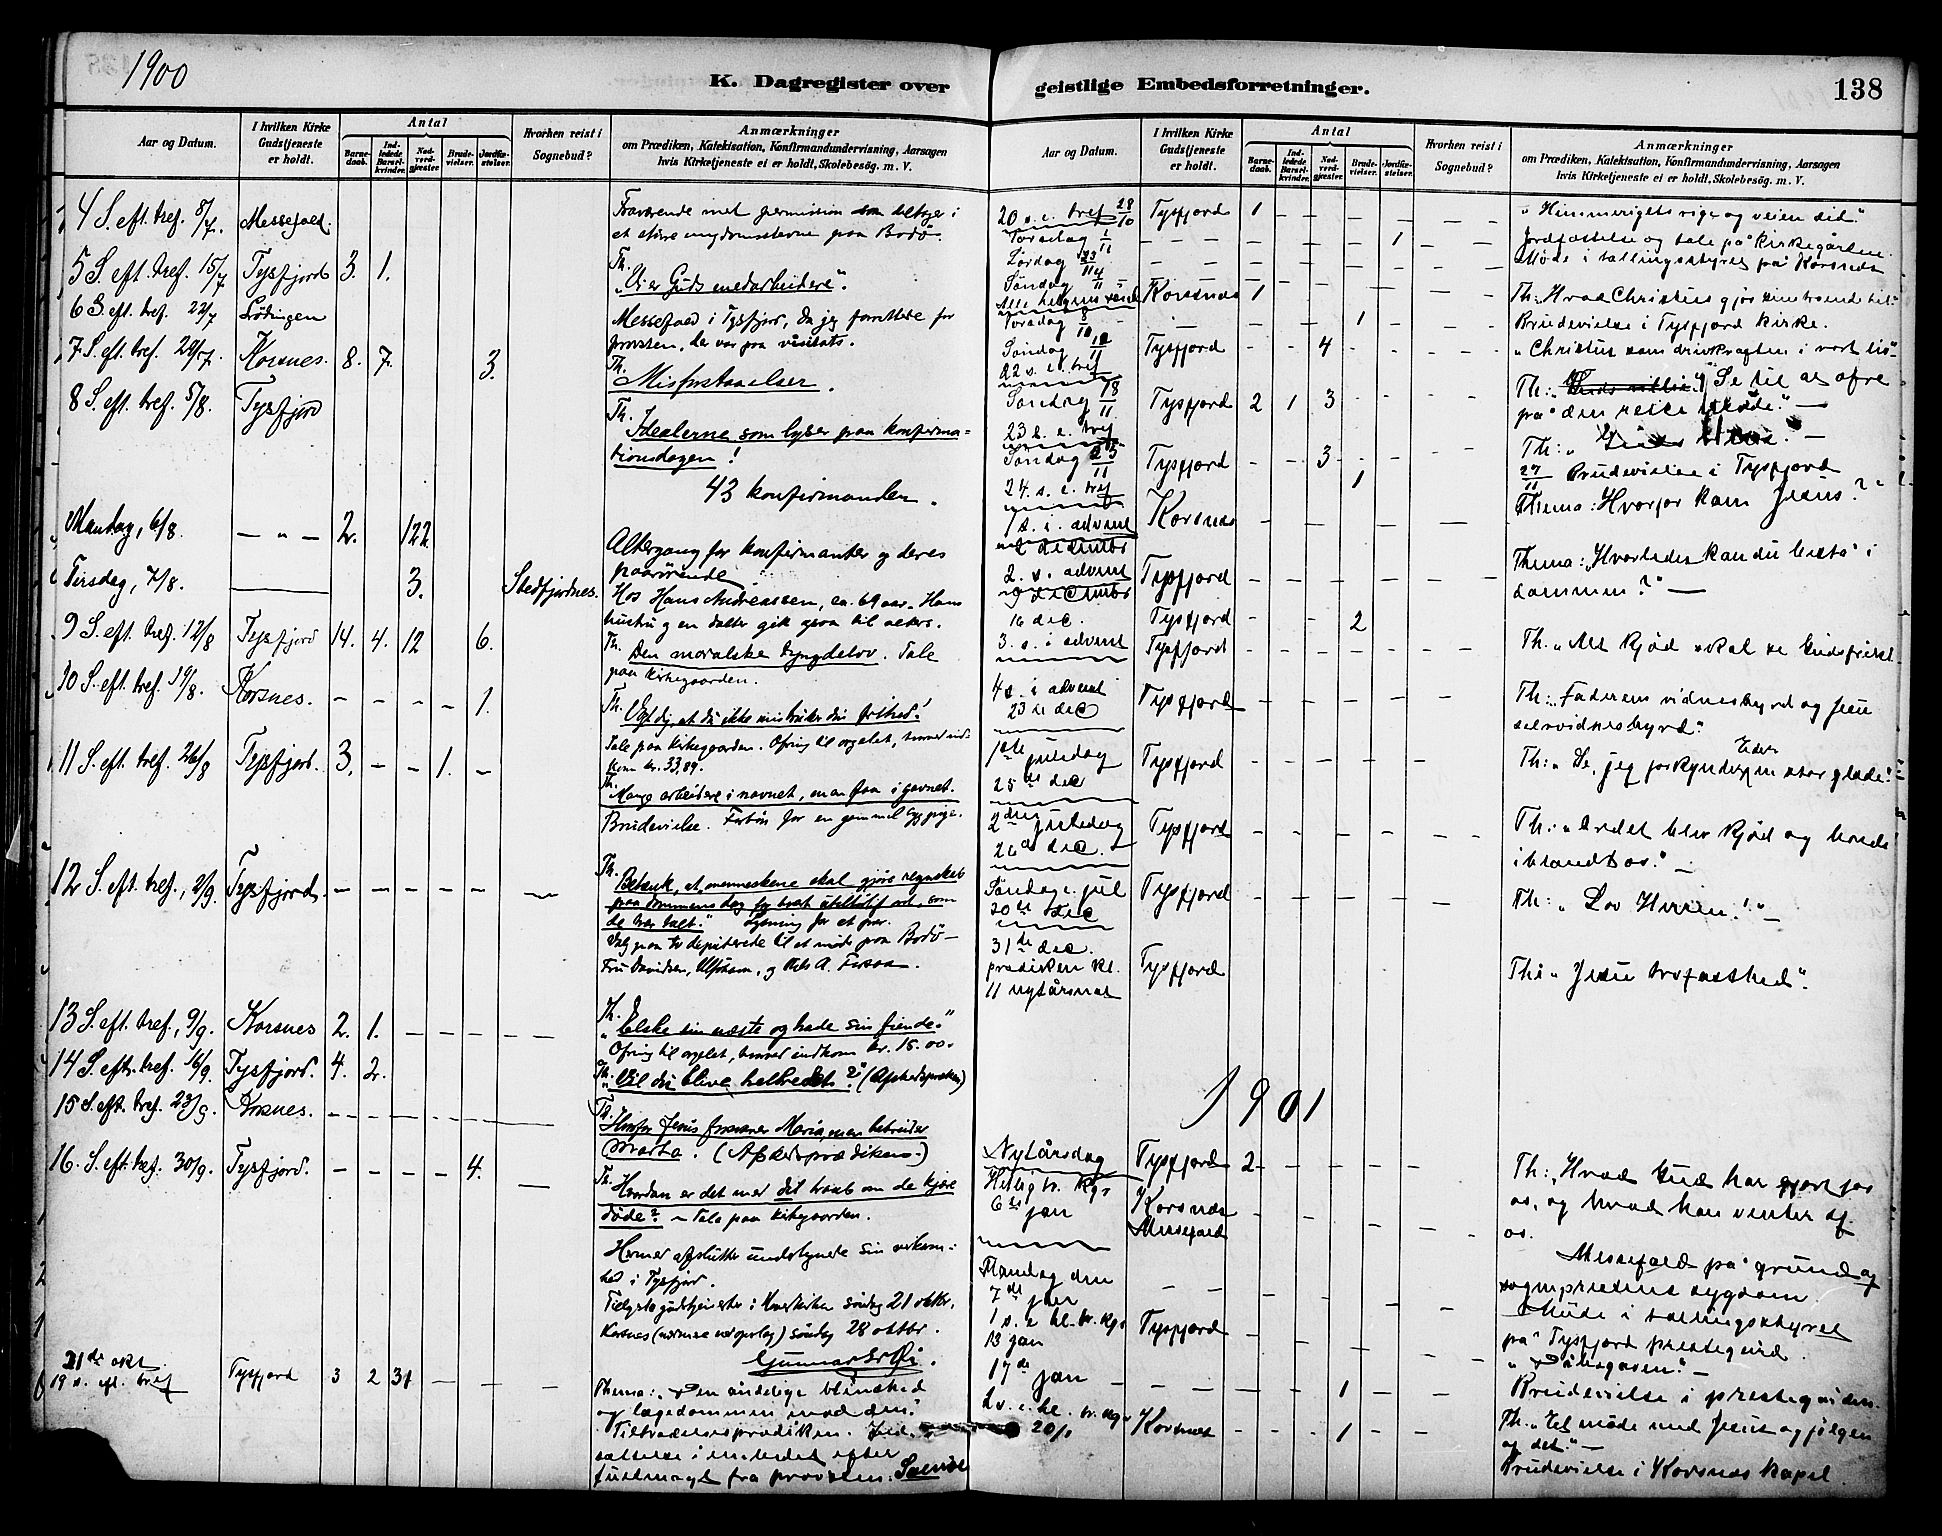 1900
K. Dagregister over
Aar og Datum.
I hvilken Kirke Gudstjeneste er holdt.
Antal
Barne-daab.
Ind-ledede Barsel-kvinder.
Nad-verd-gjester.
Brude-vielser.
Jordfæ-stelser.
Hvorhen reist i Sognebud?
Anmærkninger
om Prædiken, Katekisation, Konfirmandundervisning, Aarsagen
hvis Kirketjeneste ei er holdt, Skolebesøg. m. V.
4 S. eft. tref. 8/7. Messefald. Fraværende med permission
et større ungdomsstevne paa Bodø.
5 S. eft. tref. 15/7 Tysfjord 3. 1. Th.
"Vi er Guds medarbeidere".
6 S. eft. tref. 22/7 Lødingen Messefald i Tysfjord, da jeg forrettede for
provsten, der var paa visitats.
7 S. eft. tref. 29/7. Korsnes. 8. 7. 3. Th.
Misforstaaelser.
8 S. eft. tref. 5/8. Tysfjord Th.
Idealerne som lyser paa konfirma-
tionsdagen!
43 konfirmander.
Mandag, 6/8. — " — 2. 122. Altergang for konfirmanter og deres
paarørende
Tirsdag, 7/8. 3. Stedfjordnes. Hos Hans Andreassen, ca. 69 aar. Hans
hustru og en datter gik ogsaa til alters.
9 S. eft. tref. 12/8 Tysfjord 14. 4. 12 6. Th. Den moralske tyngdelov. Tale
paa kirkegaarden.
10 S. eft. tref. 19/8. Korsnes. — — — — 1. Th. Vogt dig, at du ikke misbruker din frihed!
Tale paa kirkegaarden. Ofring til orgelet,
kom kr. 33,89.
11 S. eft. tref. 26/8 Tysfjord. 3. — — 1. — Th.
Mange arbeidere i navnet, men faa i gavnet.
Brudevielse. Forbøn for en gammel
12 S. eft. tref., 2/9. Tysfjord. — — — — — — Th.
Betænk, at menneskene skal gjøre regnskab
paa dommens dag for hvert utilbørligt ord, som
de har talt." Lysning for et par.
Valg paa to deputerede til et møde paa Bodø —
Fru Davidsen, og Nils A.
13 S. eft. tref., 9/9. Korsnes 2. 1. — — — — Th.
"Elske sin næste og hade sin fiende."
Ofring til orgelet, hvorved indkom kr. 15.00.
14 S. eft. tref. 16/9. Tysfjord. 4. 2. Th.
"Vil du blive helbredet?" (Afskedsprædiken)
15 S. eft. tref. 23/9. Korsnes. — — — — — — Th.
Hvorfor Jesus forsvarer Maria, men bebreider
Martha. (Afskedsprædiken.)
16. S. eft. tref. 30/9. Tysfjord. — — — — 4. — Th.
Hvordan er det med dit haab om de kjære
døde? — Tale paa kirkegaarden.
Hermed afslutter undertegnede sin virksom-
hed i Tysfjord.
Tillyste gudstjenester i hovedkirken søndag 21 oktbr.
Korsnes søndag 28 oktbr.
Gunnar
21de okt.
19 s. ef. tref Tysfjord 3 2 31 — — — Thema: "Den åndelige blindhed
og lægedommen mod den."
Tiltrædelsesprædiken. Ind-
sættelse i embedet efter
fuldmagt fra provsten.
geistlige Embedsforretninger.
138
Aar og Datum.
I hvilken Kirke Gudstjeneste er holdt.
Antal
Barne-daab.
Ind-ledede Barsel-kvinder.
Nad-verd-gjester.
Brude-vielser.
Jordfæ-stelser.
Hvorhen reist i Sognebud?
Anmærkninger
om Prædiken, Katekisation, Konfirmandundervisning, Aarsagen
hvis Kirketjeneste ei er holdt, Skolebesøg. m. V.
20 s. e. tref 28/10 Tysfjord 1 — — — — — — "Himmerigets rige og veien did."
Torsdag 1/11 — — — — — — 1 — — Jordfæstelse og tale på kirkegården.
Lørdag — — — — — — — Møde i tællingsstyret på Korsnes
Søndag 4/11
Alle helgens søndag Korsnæs 1 — — — Th: Hvad Christus gjør sine troende til
Torsdag 8/ — — 1 — — Brudevielse i Tysfjord kirke.
Søndag 11
22 s. e. tref Tysfjord — — 4 — — — "Christus som drivkraften i vort liv"
Søndag 18/11
23 s. e. tref Tysfjord 2 1 3 — — — Th: Se til at ofre
på den rette måde." —
Søndag 25/11
24. s. e. tref Tysfjord — — 3 — — — Th: "
1 27/11 Brudevielse i Tysfjord
1 s. i. advent
2 december Korsnæs — — — — — — Thema: Hvorfor kom Jesus?"
2. s. advent
9 december Tysfjord — — — — — — Thema: "Hvorledes kan du bestå i
dommen?" —
16 dec. Tysfjord 2
3. s. i advent Tysfjord — — — — — — Th. "Alt kjød skal se Guds frelse
4 s. i advent
23de dec Tysfjord — — — — — — Th: "Faderens vidnesbyrd og Jesu
selvvidnesbyrd."
1ste juledag
25de dec Tysfjord — — — — — — Th: "Se, jeg forkynder Eder en stor glæde."
2den juledag
26de dec. Tysfjord — — — — — — Th: "Ordet blev kjød og boede
iblandt os." —
Søndag e. jul
30te dec Tysfjord — — — — — — Th: "Lov Herren!" —
31de dec.
prædiken kl.
11 nytårsnat Tysfjord Th: "Jesu trofasthed".
1901
Nytårsdag Tysfjord 2 — — — — — Th: "Hvad Gud har gjort for
os, og hvad han venter af
os.
Hellig tr. kgs
6te jan Korsnæs
Messefald — — — — — — Messefald på grund af
sogneprestens sygdom.
Mandag den
7de jan — — — — — — Møde i tællingsstyret
på Tysfjord prestegård.
1 s. e. hl. tr. kgs
13 jan Tysfjord — — — — — — "Dåbsgaven." —
17de jan — — — — 1 — — Brudevielse i prestegården.
2 s. e. hl. tr. kgs
20/1 Korsnæs 1 — — Th. "Et møde med Jesus og følgen
af det." —
Brudevielse i Korsnæs kapel.